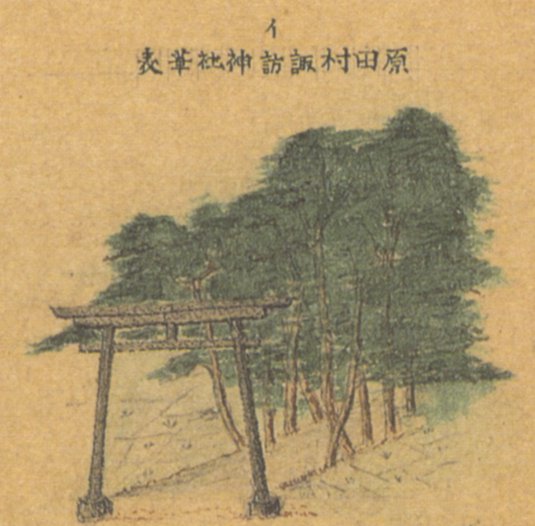 イ
原田村諏訪神社華表